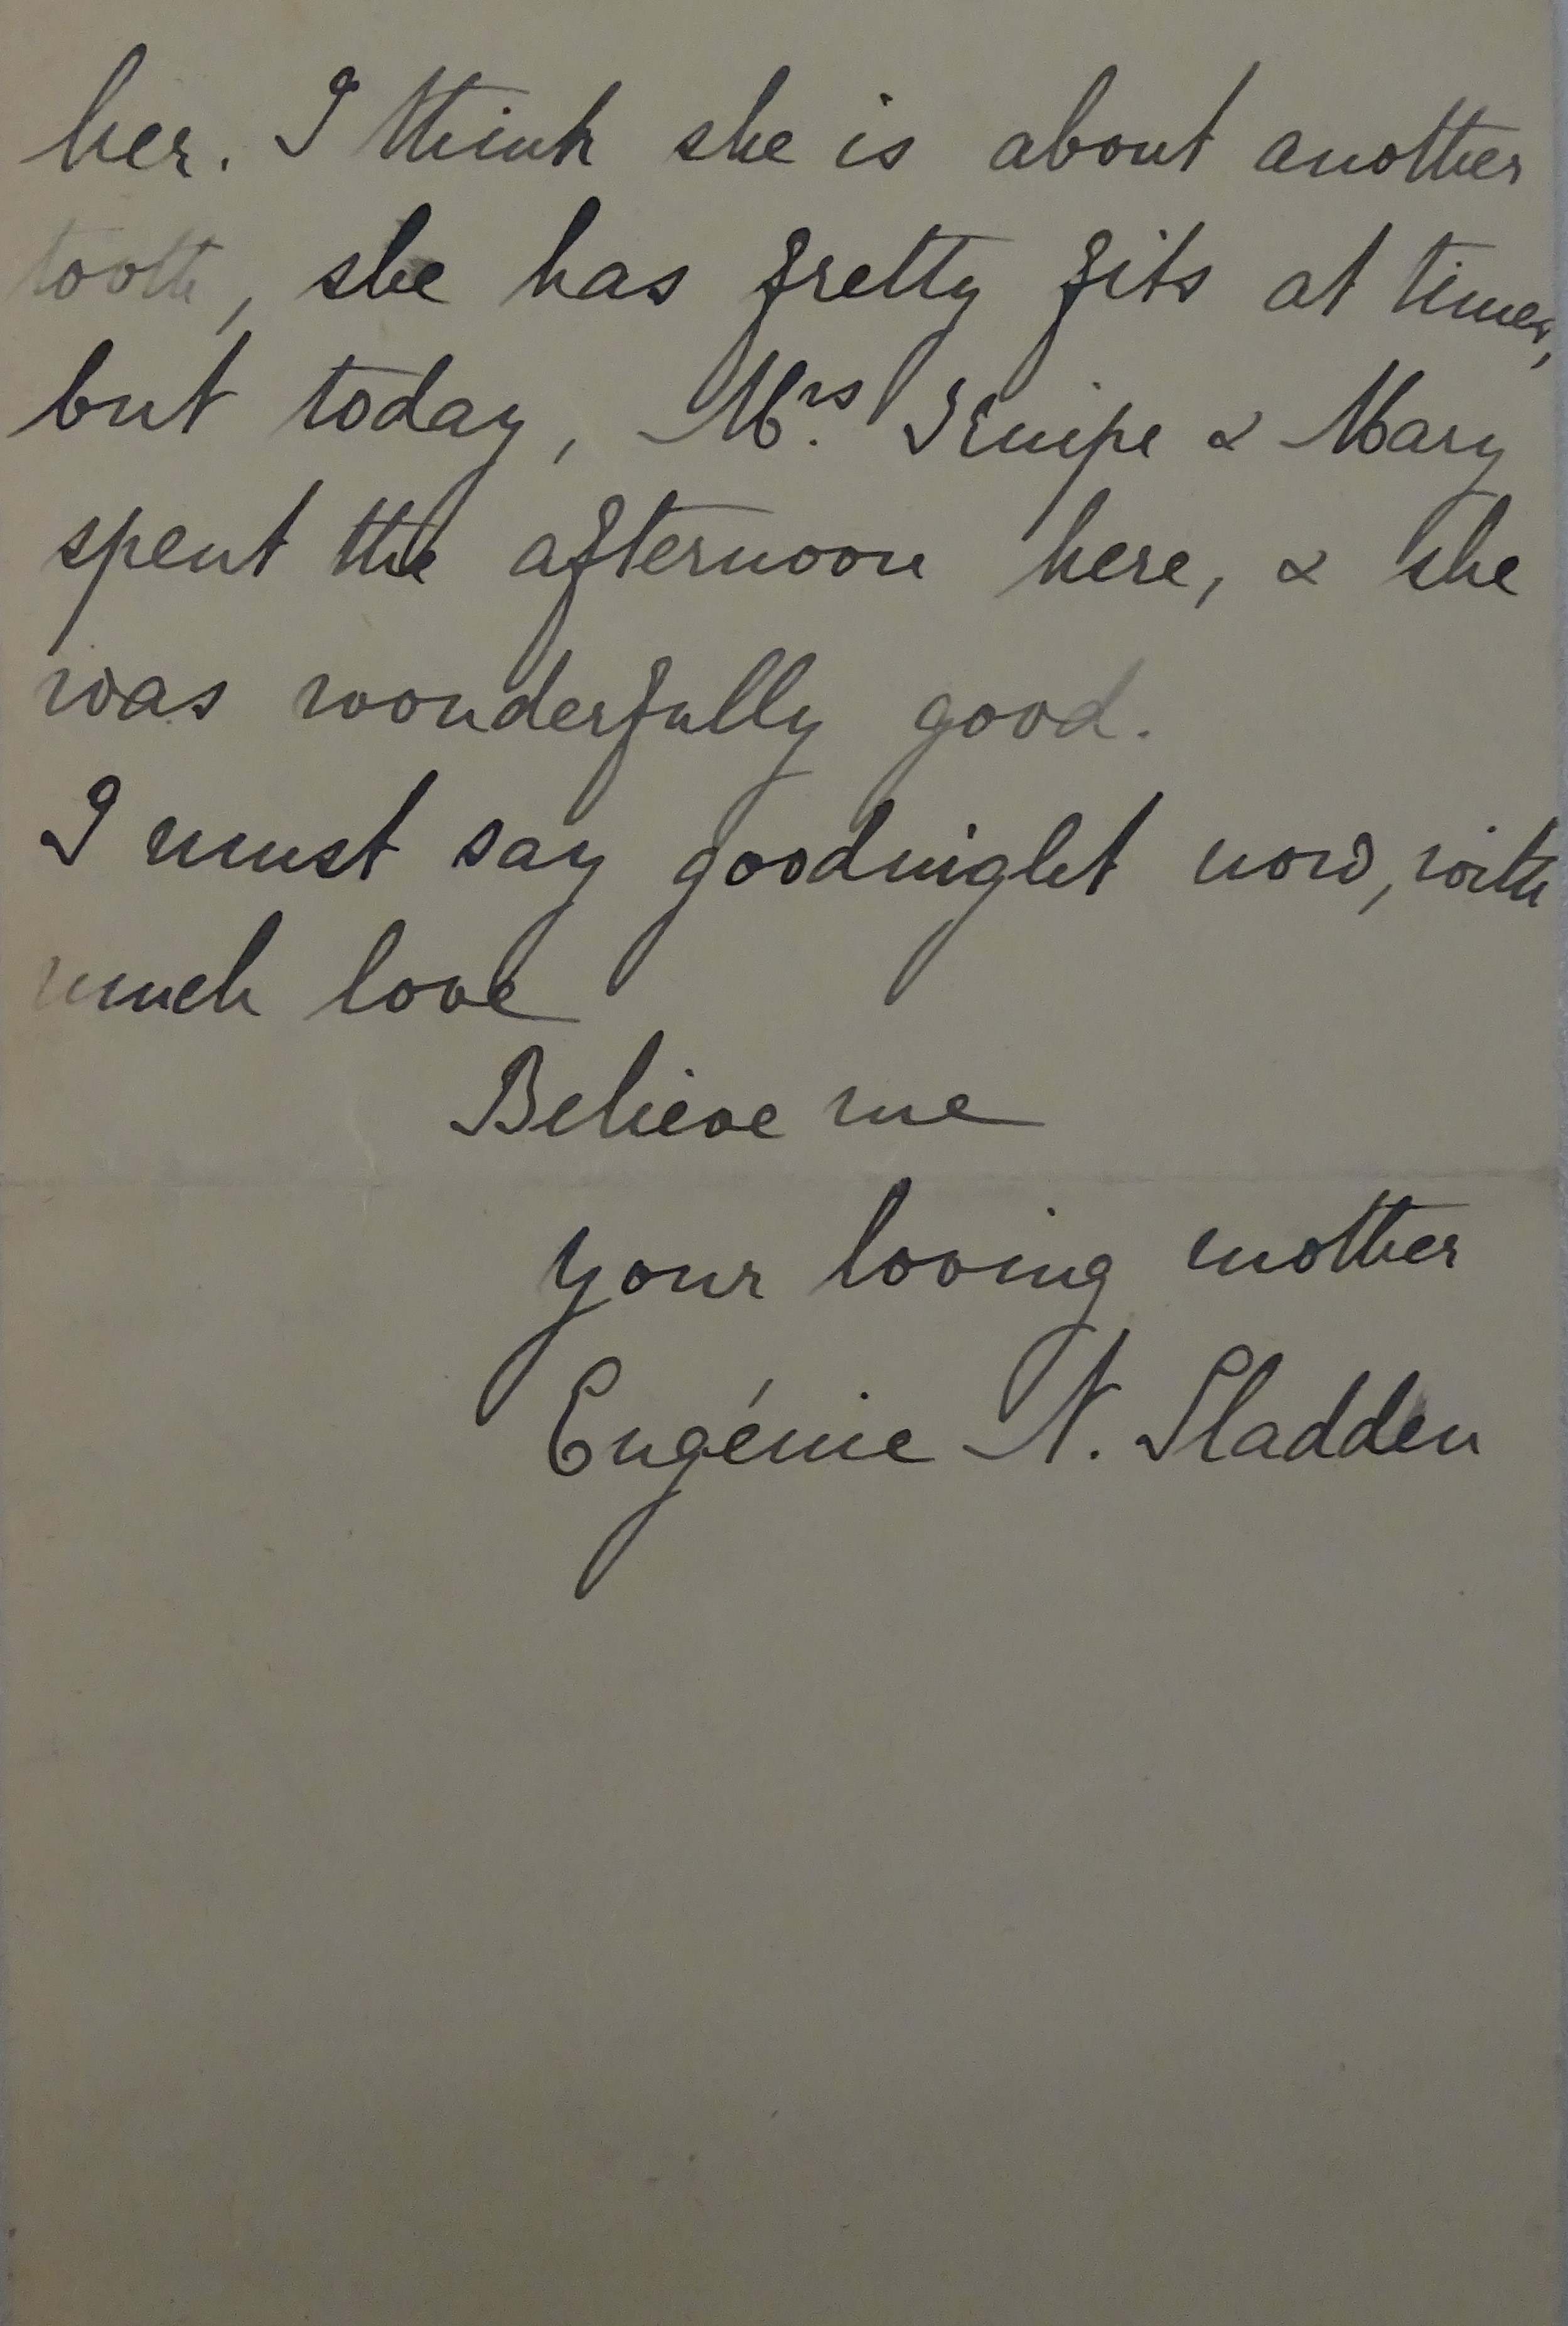 her. I think she is about another
tooth, she has fretty fits at times,
but today, Mrs. Knipe & Mary
spent the afternoon here, & she
was wonderfully good.
I must say goodnight now, with
much love
Believe me
your loving mother
Eugénie N. Sladden